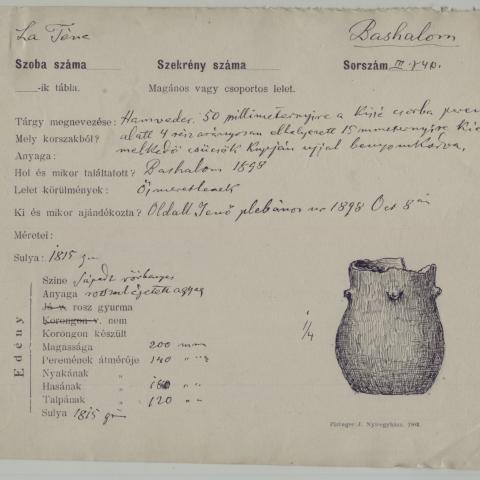 La Tène
Bashalom
Szoba száma
Szekrény száma
Sorszám III. 740.
-ik tábla.
Magános vagy csoportos lelet.
Tárgy megnevezése: Hamveder. 50 millimeternyire a kissé csorba perem
Mely korszakból? alatt 4 rész arányosan elhelyezett 15 mmeternyire kie
Anyaga: melkedő csücsök kupján ujjal benyomkodva.
Hol és mikor találtatott? Bashalom 1898
Lelet körülmények: Ösmeretlenek
Ki és mikor ajándékozta? Oldall Jenő plébános ur 1898 Oct 8 án
Méretei:
Sulya: 1815 gr
Edény
Szine Sápadt vörhenyes
Anyaga rosszul égetett agyag
Jó v. rosz gyurma
Korongon v. nem
Korongon készült
Magassága 200 mm
Peremének átmérője 140 " "
Nyakának "
Hasának " 160 " "
Talpának " 120 " "
Sulya 1815 gr
1/4
Piringer J. Nyiregyháza, 1902.